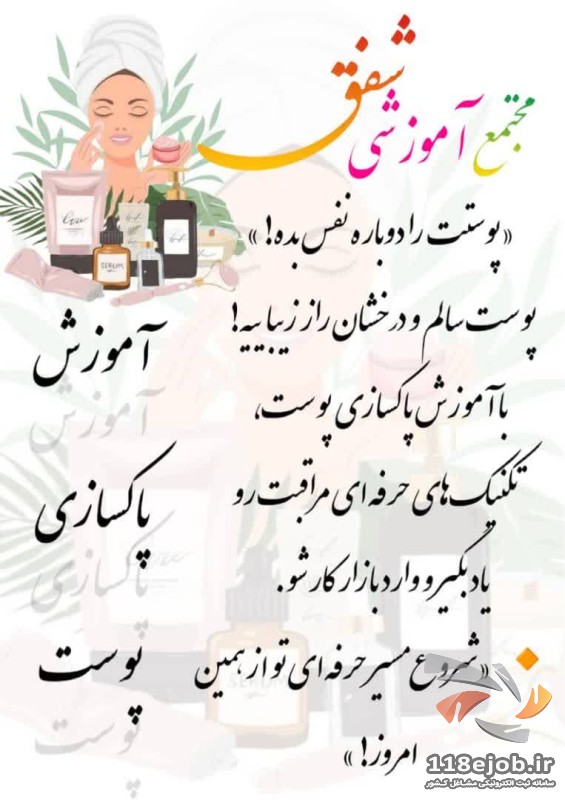 مجتمع آموزشی شفق
«پوستت را دوباره نفس بده!»
پوست سالم و درخشان راز زیباییه!
با آموزش پاکسازی پوست،
تکنیک‌های حرفه‌ای مراقبت رو
یاد بگیر و وارد بازار کار شو.
«شروع مسیر حرفه‌ای تو از همین
امروز!»
آموزش
پاکسازی
پوست
SERUM
118ejob.ir
سامانه ثبت الکترونیکی مشاغل کشور